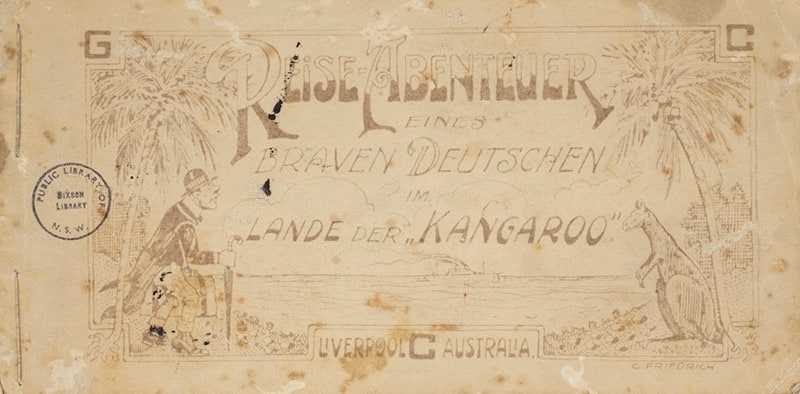 G C
REISE-ABENTEUER
EINES
BRAVEN DEUTSCHEN
IM
LANDE DER „KANGAROO".
PUBLIC LIBRARY OF
DIXSON
LIBRARY
N.S.W.
LIVERPOOL C AUSTRALIA.
C. FRIEDRICH